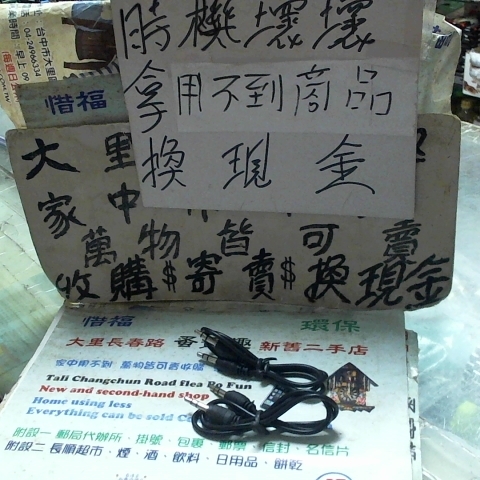 時機壞壞
拿用不到商品
換現金
台中市大里區
04-24966334
惜福
大里
家中
萬物皆可賣
收購$寄賣$換現金
惜福 環保
大里長春路 趣 新舊二手店
家中用不到 萬物皆可寄收購
Tali Changchun Road flea Bo Fun
New and second-hand shop
Home using less
Everything can be sold
附設一 郵局代辦所、掛號、包裹、郵票、信封、名信片
附設二 長順超市、煙、酒、飲料、日用品、餅乾